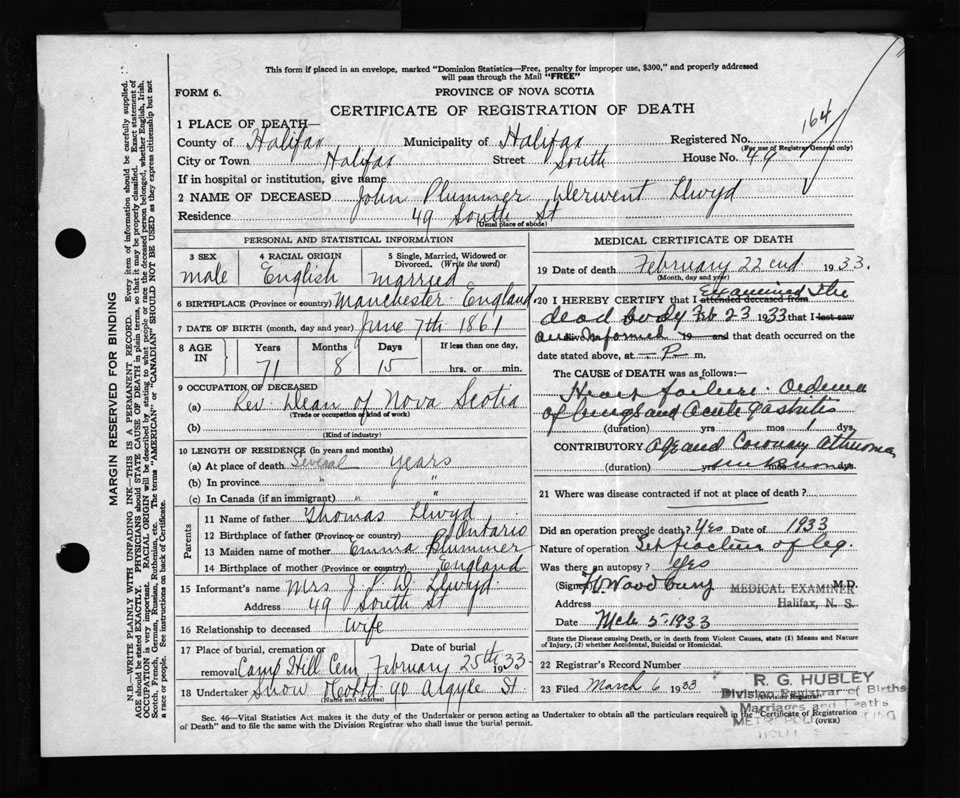 This form if placed in an envelope, marked "Dominion Statistics—Free, penalty for improper use, $300," and properly addressed
will pass through the Mail "FREE"
FORM 6.
PROVINCE OF NOVA SCOTIA
CERTIFICATE OF REGISTRATION OF DEATH
164
1 PLACE OF DEATH—
County of Halifax Municipality of Halifax Registered No.
(For use of Registrar General only)
City or Town Halifax Street South House No. 49
If in hospital or institution, give name
2 NAME OF DECEASED John Plummer Derwent Llwyd
Residence 49 South St
(Usual place of abode)
PERSONAL AND STATISTICAL INFORMATION
3 SEX 4 RACIAL ORIGIN 5 Single, Married, Widowed or
Divorced. (Write the word)
male English married
6 BIRTHPLACE (Province or country) Manchester England
7 DATE OF BIRTH (month, day and year) June 7th 1861
8 AGE IN Years Months Days If less than one day,
71 8 15 hrs. or min.
9 OCCUPATION OF DECEASED
(a) Rev. Dean of Nova Scotia
(Trade or occupation or kind of work)
(b)
(Kind of industry)
10 LENGTH OF RESIDENCE (in years and months)
(a) At place of death Several years
(b) In province " "
(c) In Canada (if an immigrant) " "
Parents
11 Name of father Thomas Llwyd
12 Birthplace of father (Province or country) Ontario
13 Maiden name of mother Emma Plummer
14 Birthplace of mother (Province or country) England
15 Informant's name Mrs J. P. D. Llwyd
Address 49 South St
16 Relationship to deceased wife
17 Place of burial, cremation or removal Date of burial
Camp Hill Cem February 25th 1933
18 Undertaker Snow & Co Ltd 90 Argyle St.
(Name and address)
MEDICAL CERTIFICATE OF DEATH
19 Date of death February 22 nd 1933.
(Month, day and year)
20 I HEREBY CERTIFY that I attended deceased from Examined the
dead body Feb 23 1933 that I last saw
and informed 19 and that death occurred on the
date stated above, at — P — m.
The CAUSE of DEATH was as follows:—
Heart failure. Oedema
of lungs and acute gastritis
(duration) yrs mos 1 dys.
CONTRIBUTORY Age and Coronary Atheroma
(duration) yrs mos dys. unknown
21 Where was disease contracted if not at place of death?
Did an operation precede death? Yes Date of 1933
Nature of operation Set fracture of leg.
Was there an autopsy? Yes
(Signed) Woodbury M.D.
MEDICAL EXAMINER
Address Halifax, N. S.
Date Mch 5- 1933
State the Disease causing Death, or in death from Violent Causes, state (1) Means and Nature
of Injury, (2) whether Accidental, Suicidal or Homicidal.
22 Registrar's Record Number
23 Filed March 6 1933
R. G. HUBLEY
Division Registrar of Births
Marriages and Deaths
Sec. 46—Vital Statistics Act makes it the duty of the Undertaker or person acting as Undertaker to obtain all the particulars required in the "Certificate of Registration
of Death" and to file the same with the Division Registrar who shall issue the burial permit.
(OVER)
MARGIN RESERVED FOR BINDING
N.B.—WRITE PLAINLY WITH UNFADING INK—THIS IS A PERMANENT RECORD. Every item of information should be carefully supplied.
AGE should be stated EXACTLY. PHYSICIANS should STATE CAUSE OF DEATH in plain terms, so that it may be properly classified. Exact statement of
OCCUPATION is very important. RACIAL ORIGIN will be described by stating to what people or race the deceased person belonged, whether English, Irish,
Scotch, French, German, Russian, Ruthenian, etc. The terms "AMERICAN" or "CANADIAN" SHOULD NOT BE USED as they express citizenship but not
a race or people. See instructions on back of Certificate.